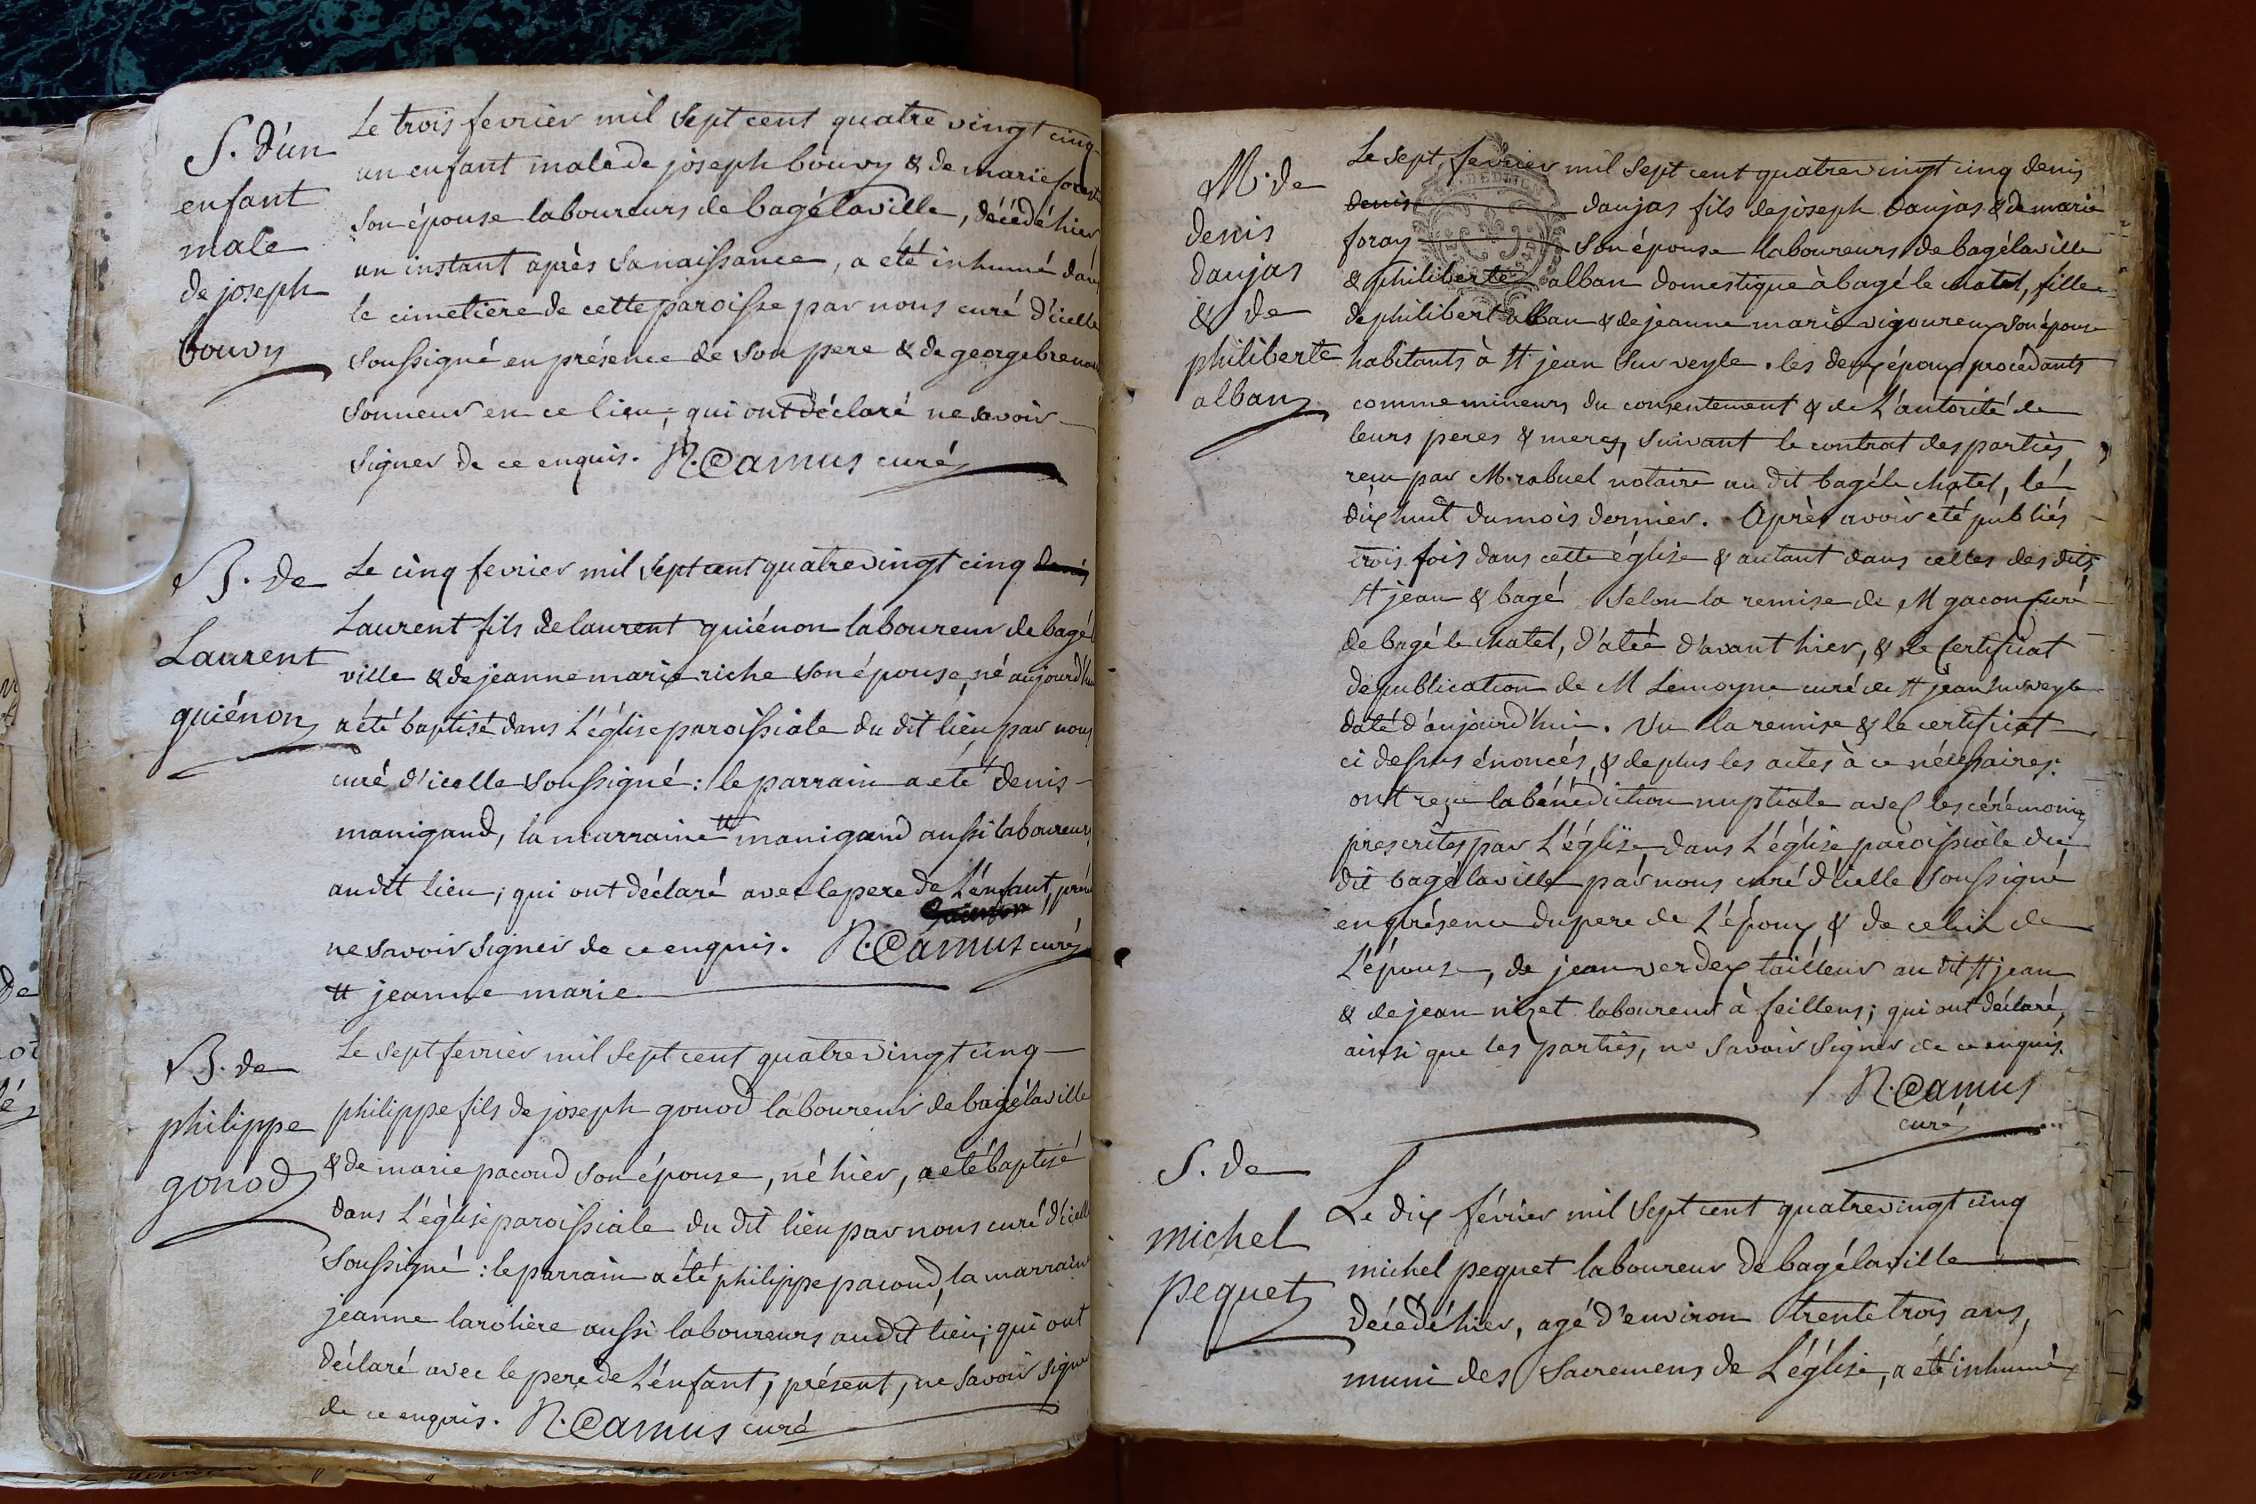 S. d'un
enfant
male
de joseph
bouvy
Le trois fevrier mil sept cent quatre vingt cinq
un enfant male de joseph bouvy & de marie
son épouse laboureurs de bagélaville, décédé hier
un instant après sa naissance, a eté inhumé dans
le cimetiere de cette paroisse par nous curé d'icelle
soussigné en présence de son pere & de george
sonneur en ce lieu; qui ont déclaré ne savoir
signer de ce enquis. N. Camus curé
B. de
Laurent
guiénon
Le cinq fevrier mil sept cent quatre vingt cinq
Laurent fils de laurent guiénon laboureur de bagé
ville & de jeanne marie riche son épouse, né aujourd'hui
a été baptisé dans l'église paroissiale du dit lieu par nous
curé d'icelle soussigné: le parrain a eté denis
manigand, la marraine # manigand aussi laboureurs
audit lieu; qui ont déclaré avec le pere de l'enfant,
ne savoir signer de ce enquis. N. Camus curé
# jeanne marie
B. de
philippe
gonod
Le sept fevrier mil sept cent quatre vingt cinq
philippe fils de joseph gonod laboureur de bagélaville
& de marie pacoud son épouse, né hier, a eté baptisé
dans l'église paroissiale du dit lieu par nous curé d'icelle
soussigné: le parrain a été philippe pacoud, la marraine
jeanne larolière aussi laboureurs audit lieu; qui ont
déclaré avec le pere de l'enfant, présent, ne savoir signer
de ce enquis. N. Camus curé
M. de
denis
daujas
& de
philiberte
alban
Le sept fevrier mil sept cent quatre vingt cinq denis
denis daujas fils de joseph daujas & de marie
foray son épouse laboureurs de bagélaville
& philiberte alban domestique à bagé le chatel, fille
de philibert alban & de jeanne marie vigoureux son épouse
habitants à St jean sur veyle. les deux époux procédants
comme mineurs du consentement & de l'autorité de
leurs peres & meres, suivant le contrat des parties,
reçu par M. rabuel notaire au dit bagé le chatel, le
dix huit du mois dernier. Après avoir été publiés
trois fois dans cette église & autant dans celles des dits
St jean & bagé selon la remise de M gacon curé
de bagé le chatel, datée d'avant hier, & le certificat
de publication de M Lemoyne curé de St jean sur veyle
daté d'aujourd'hui. Vu la remise & le certificat
ci dessus énoncés, & de plus les actes à ce nécessaires.
ont reçu la bénédiction nuptiale avec les cérémonies
prescrites par l'église dans l'église paroissiale du
dit bagélaville par nous curé d'icelle soussigné
en présence du pere de l'époux & de celui de
l'épouse, de jean verdex tailleur au dit St jean
& de jean nizet laboureur à feillens; qui ont déclaré,
ainsi que les parties, ne savoir signer de ce enquis.
N. Camus
curé
S. de
michel
pequet
Le dix février mil sept cent quatre vingt cinq
michel pequet laboureur de bagélaville
décédé hier, agé d'environ trente trois ans,
muni des sacremens de l'église, a eté inhumé